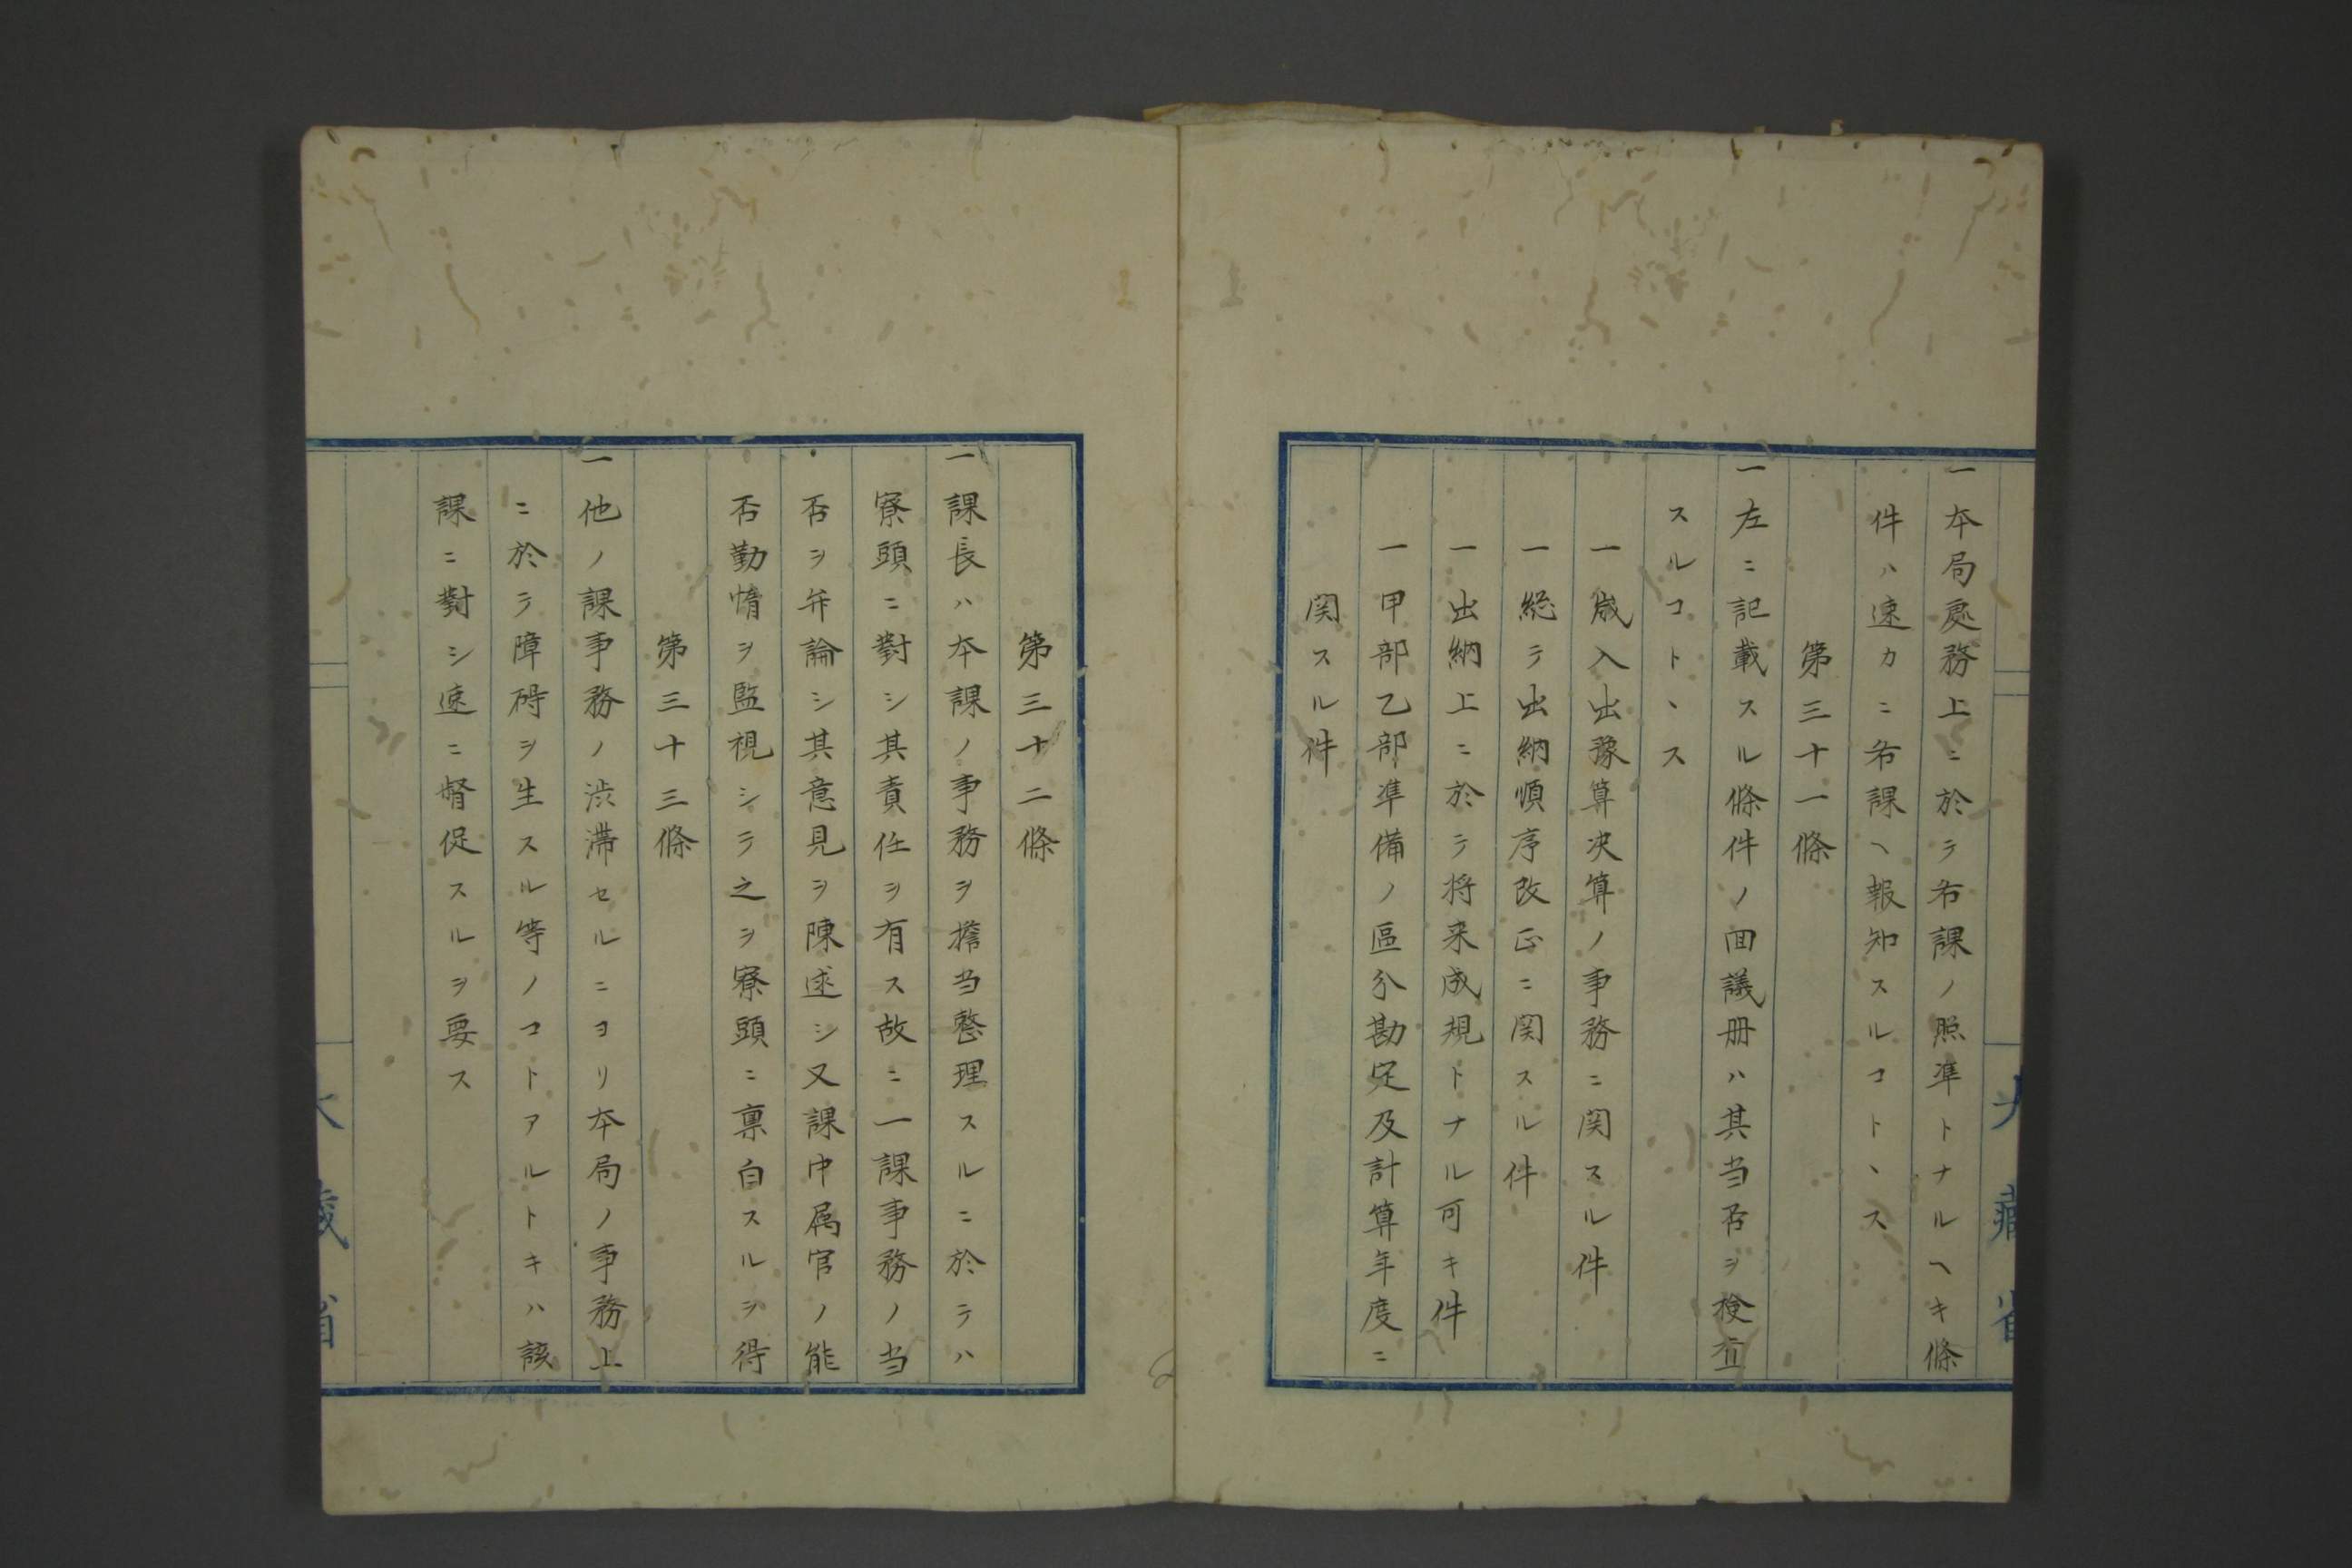 一本局處務上ニ於テ各課ノ照準トナルヘキ條
件ハ速カニ各課ヘ報知スルコトヽス
第三十一條
一左ニ記載スル條件ノ回議册ハ其当否ヲ檢査
スルコトヽス
一歳入出豫算决算ノ事務ニ関スル件
一総テ出納順序改正ニ関スル件
一出納上ニ於テ将来成規トナル可キ件
一甲部乙部準備ノ區分勘定及計算年度ニ
関スル件
第三十二條
一課長ハ本課ノ事務ヲ擔当整理スルニ於テハ
寮頭ニ對シ其責任ヲ有ス故ニ一課事務ノ当
否ヲ弁論シ其意見ヲ陳述シ又課中属官ノ能
否勤惰ヲ監視シテ之ヲ寮頭ニ禀白スルヲ得
第三十三條
一他ノ課事務ノ渋滞セルニヨリ本局ノ事務上
ニ於テ障碍ヲ生スル等ノコトアルトキハ該
課ニ對シ速ニ督促スルヲ要ス
大藏省